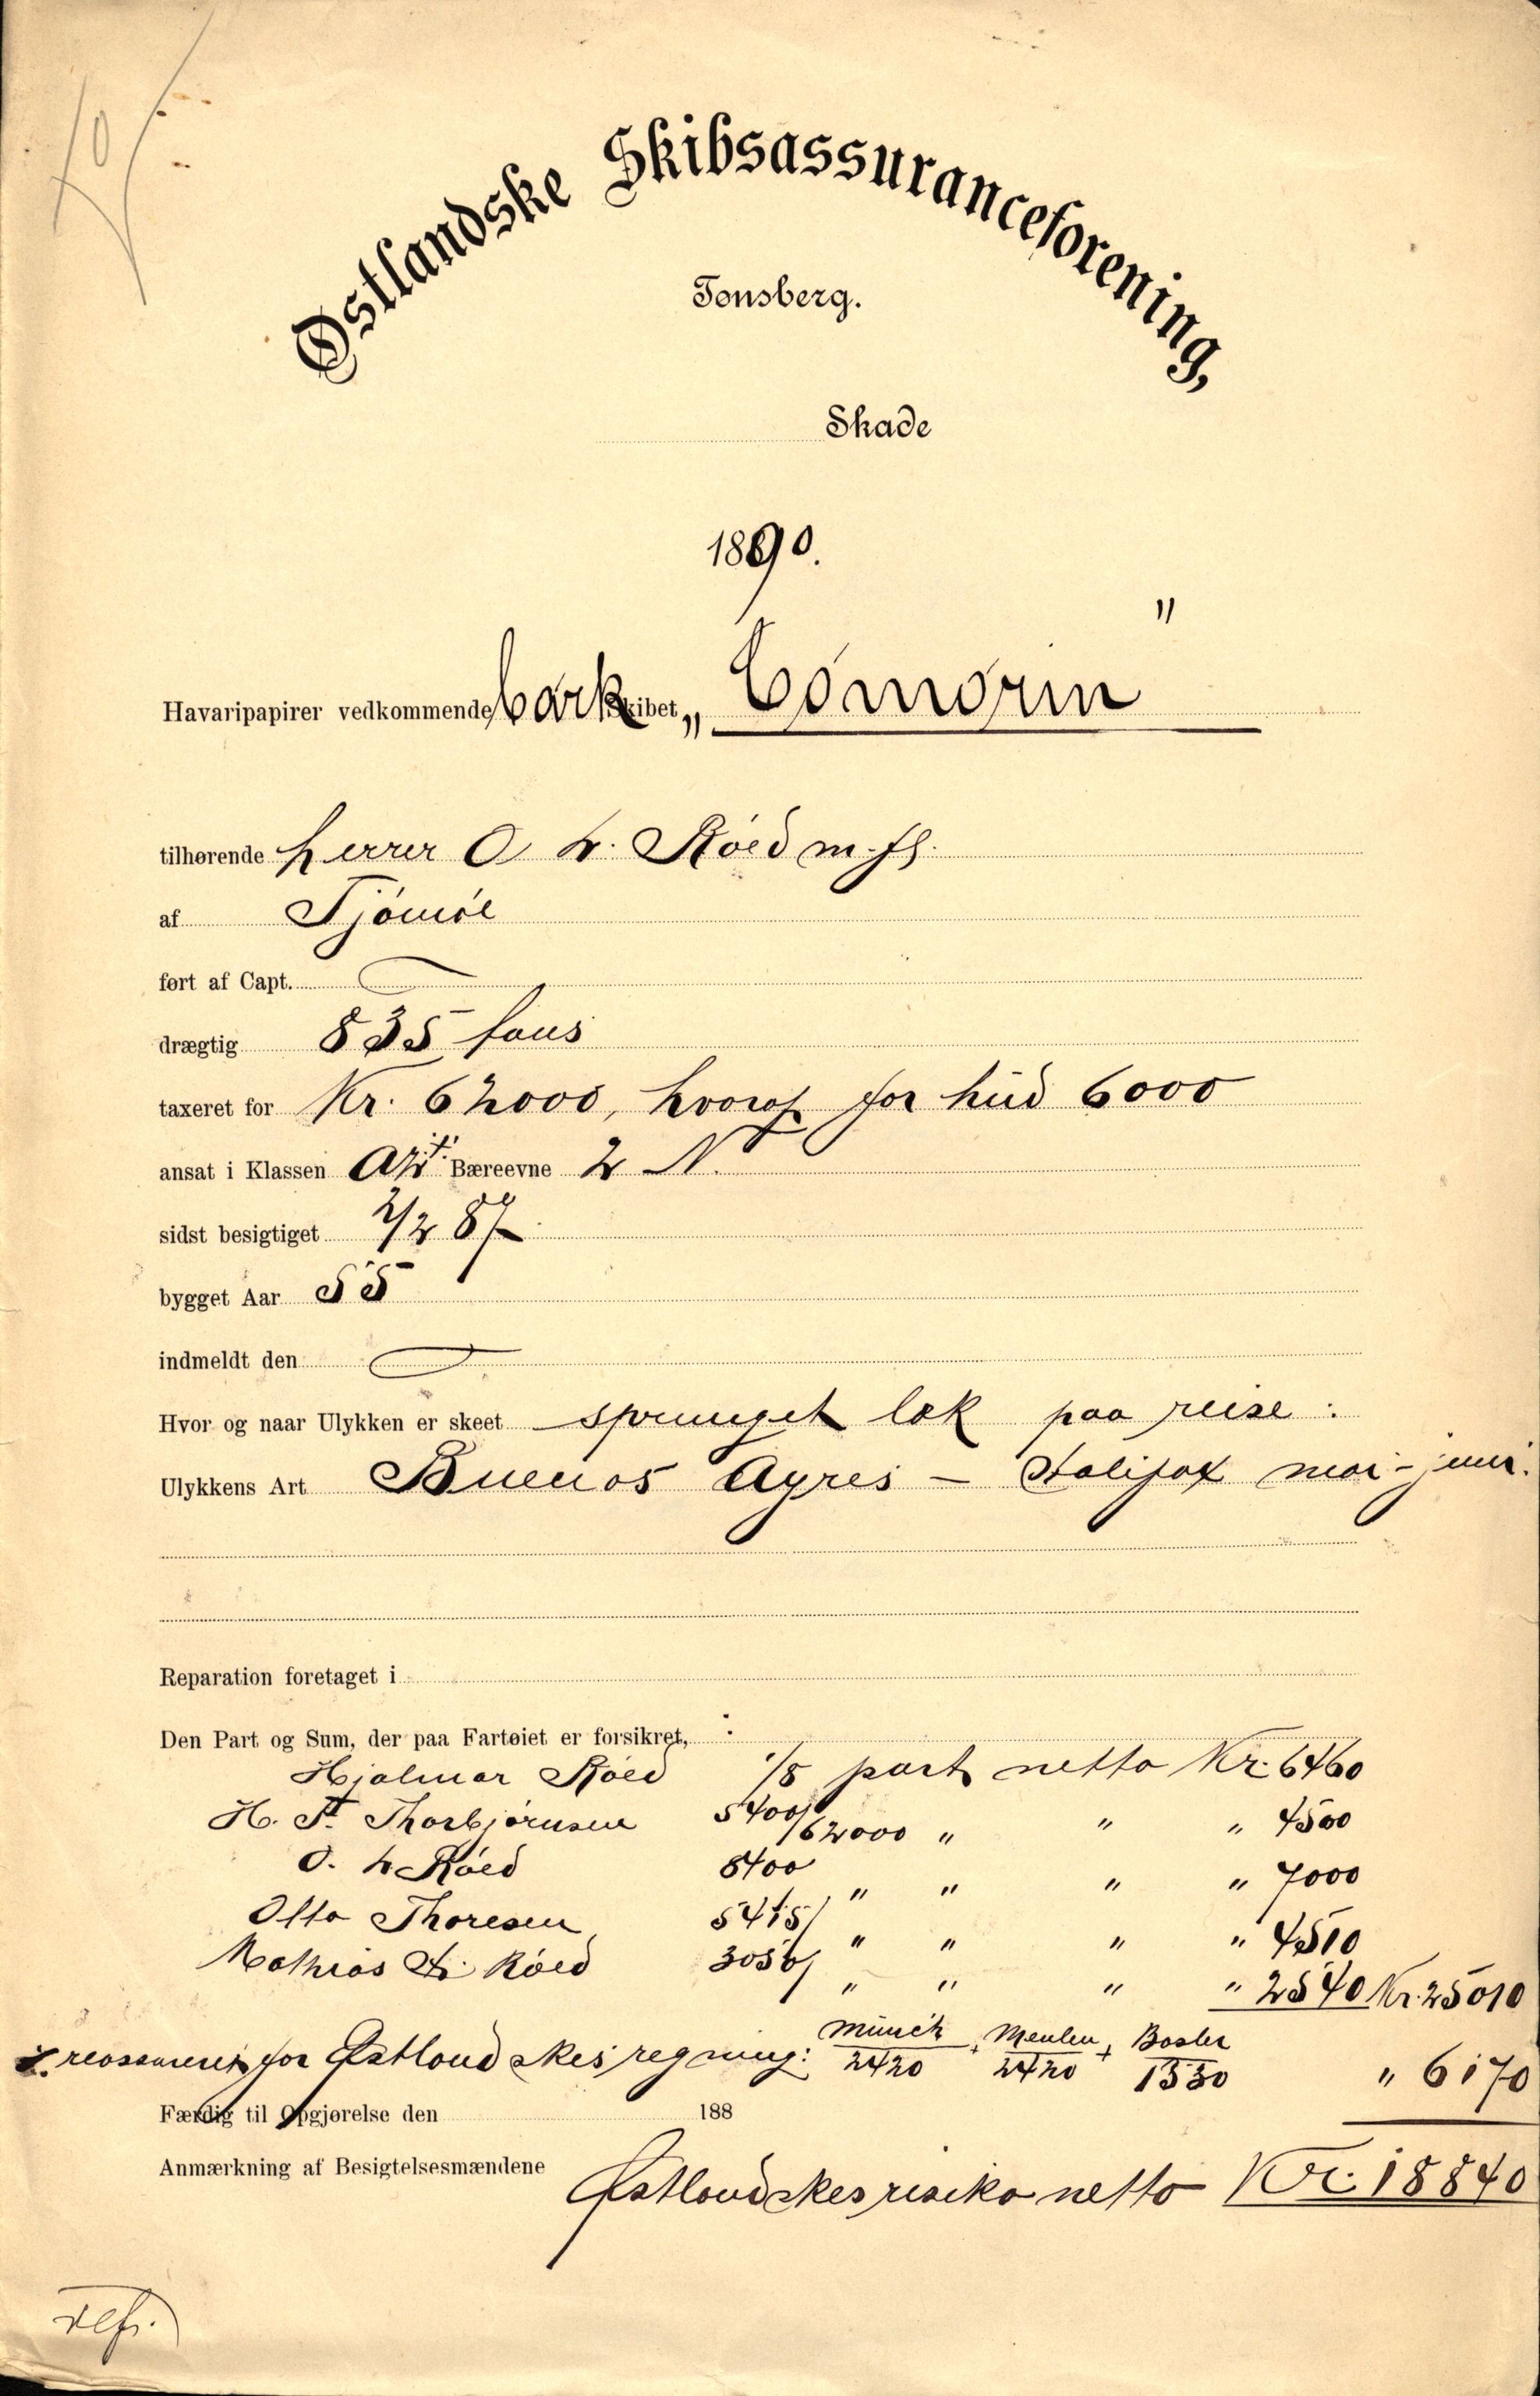 Østlandske Skibsassuranceforening,
Tønsberg.
Skade
1890.
Havaripapirer vedkommende bark Skibet „Comorin"
tilhørende herrer O L. Røed m. fl.
af Tjømøe
ført af Capt.
drægtig 535 tons
taxeret for Kr. 62000, hvoraf for hud 6000
ansat i Klassen A2 Bæreevne 2 N.
sidst besigtiget 2/2 87
bygget Aar 55
indmeldt den
Hvor og naar Ulykken er skeet sprunget læk paa reise :
Ulykkens Art Buenos Ayres – Halifax mai-juni.
Reparation foretaget i
Den Part og Sum, der paa Fartøiet er forsikret, :
Hjalmar Røed 1/8 part netto Kr. 6460
H. Thorbjørnsen 5400/62000 " " " 4500
O. L Røed 8400 " " " " 7000
Otto Thoresen 5415/ " " " " 4510
Mathias Røed 3050/ " " " " 2540 Kr. 25010
÷ reassureret for Østlandskes regning: Münch 2420 + Meulen 2420 + Basler 1330 " 6170
Færdig til Opgjørelse den 188
Anmærkning af Besigtelsesmændene
Østlandskes risiko netto Kr. 18840